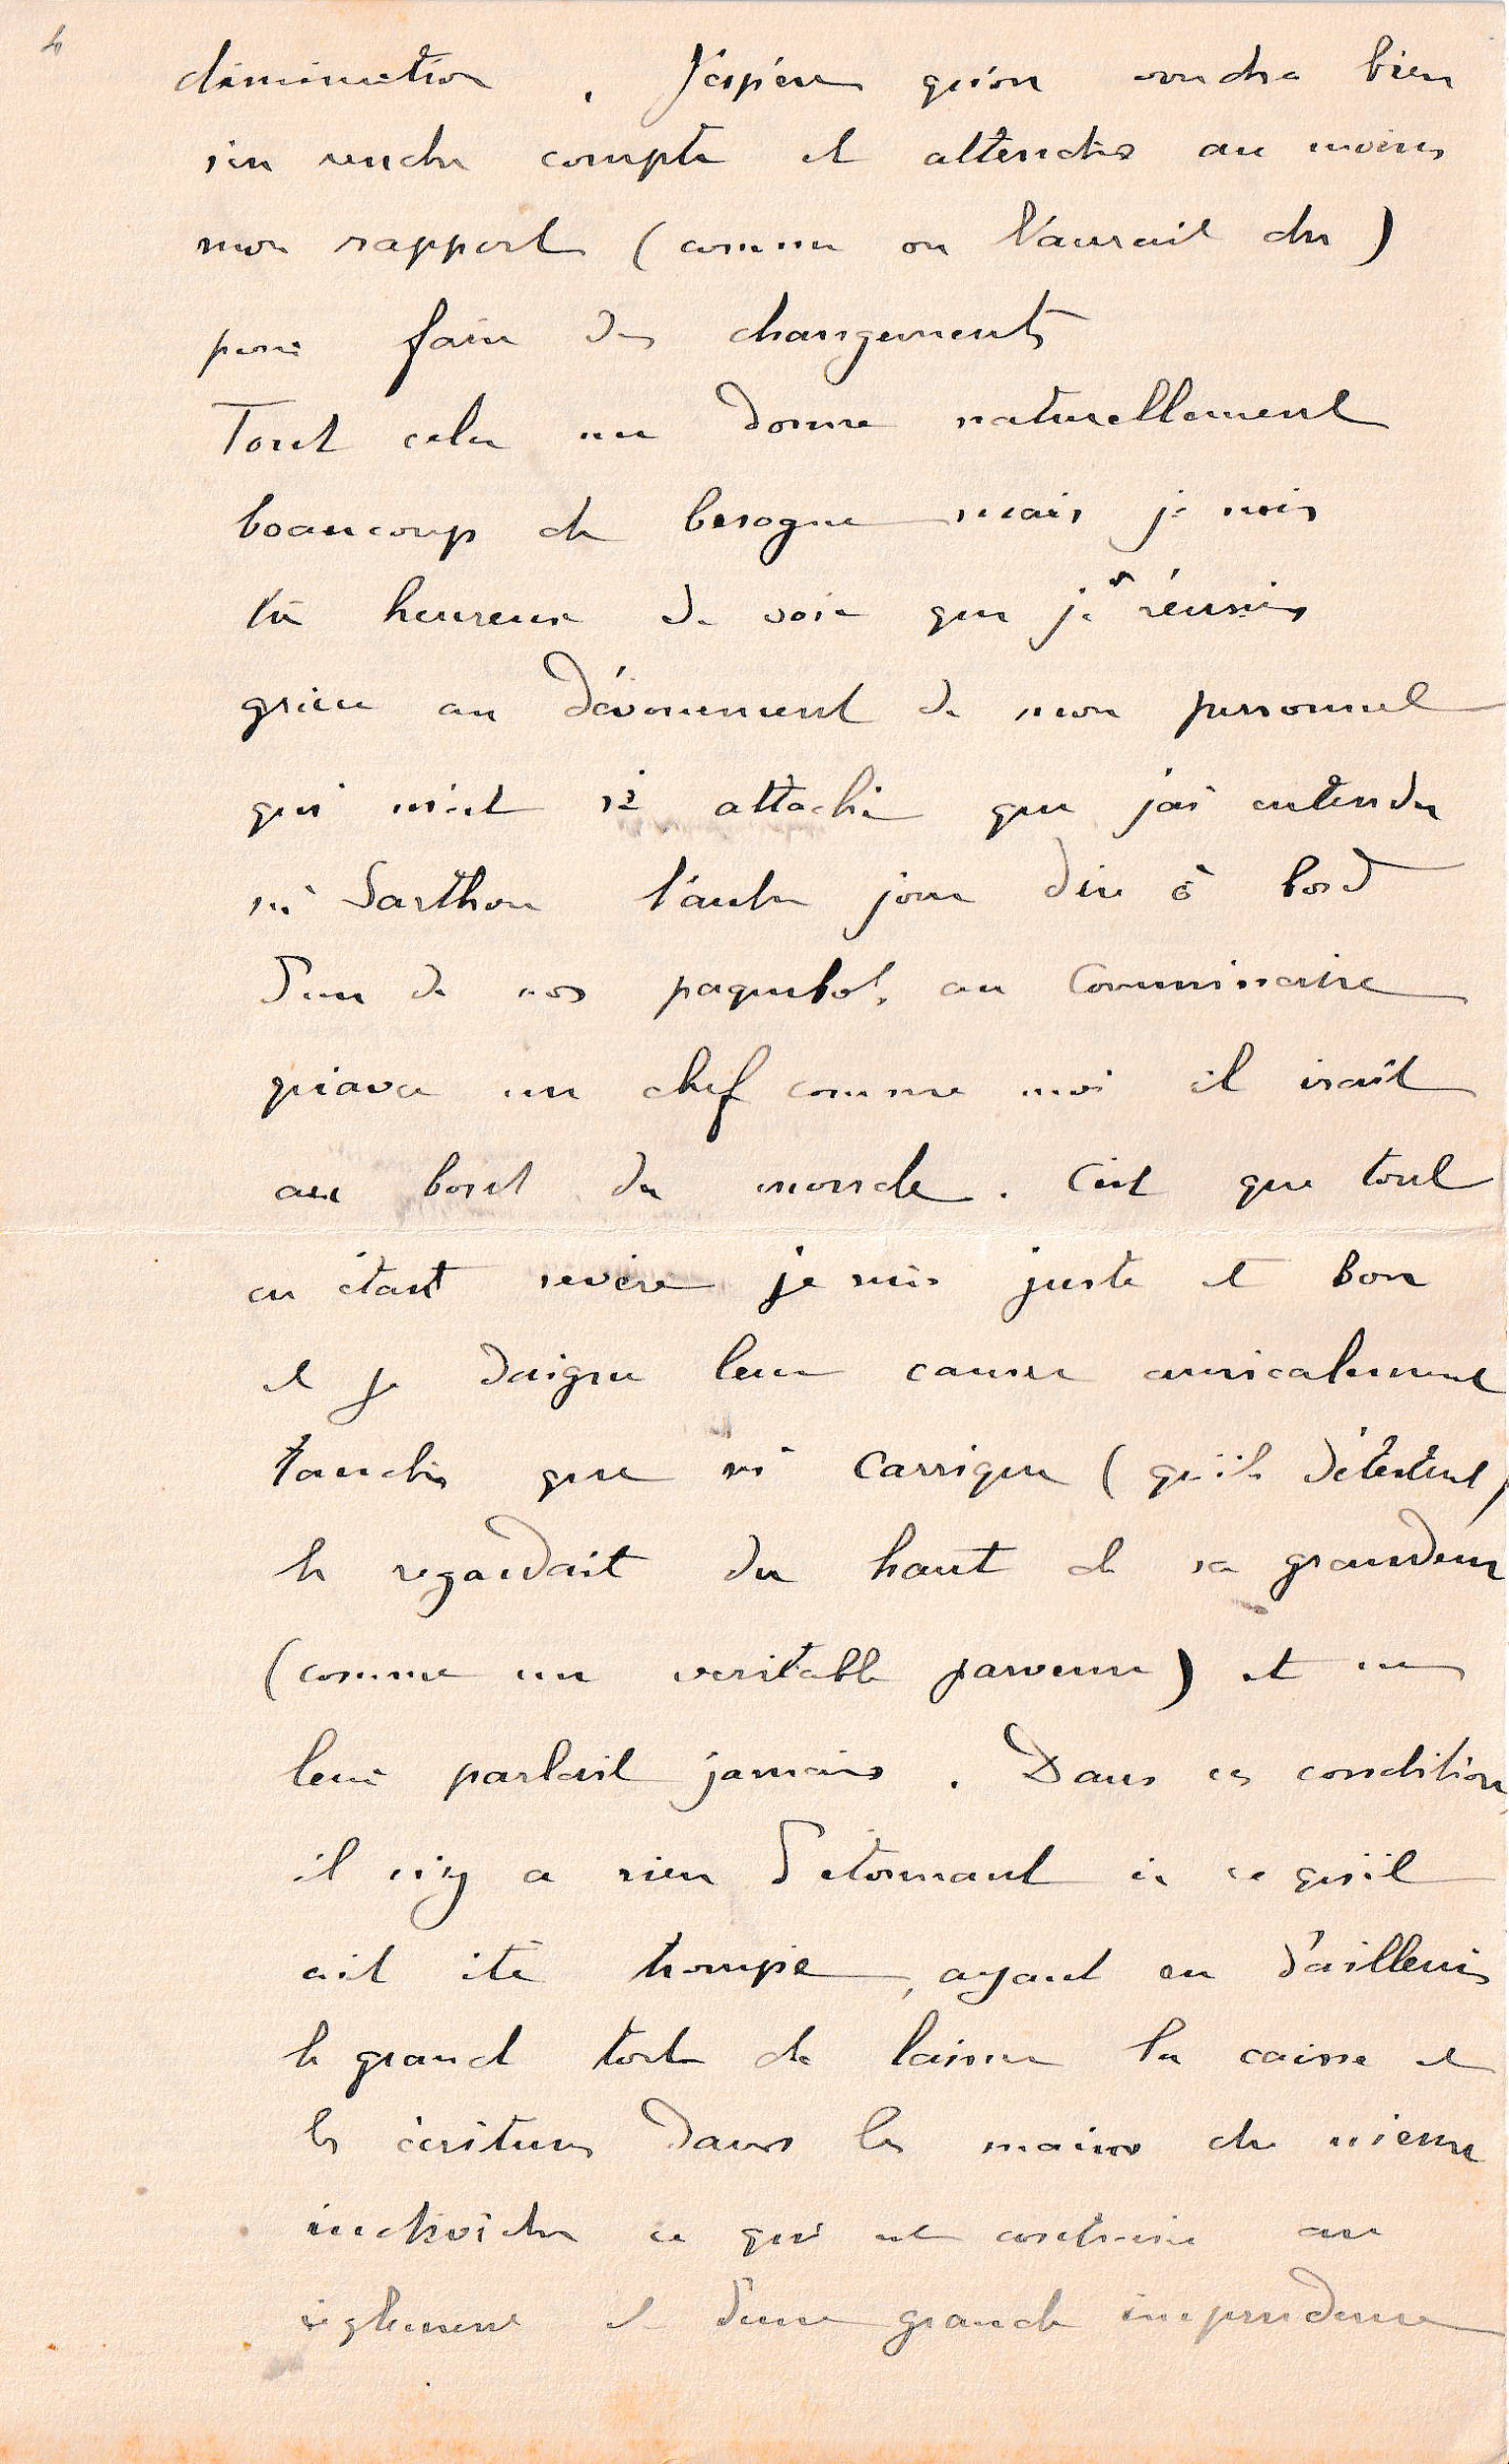 diminution. J'espère qu'on voudra bien
s'en rendre compte et attendre au moins
mon rapport (comme on l'aurait du)
pour faire des changements
Tout cela me donne naturellement
beaucoup de besogne mais je suis
très heureux de voir que je réussis
grâce au dévouement de mon personnel
qui m'est si attaché que j'ai entendu
Mr Sarthou l'autre jour dire à bord
d'un de nos paquebots au Commissaire
qu'avec un chef comme moi il irait
au bout du monde. C'est que tout
en étant severe je suis juste et bon
et je daigne leur causer amicalement
tandis que Mr Carrique (qu'ils détestent)
les regardait du haut de sa grandeur
(comme un veritable parvenu) et ne
leur parlait jamais. Dans ces conditions
il n'y a rien d'etonnant à ce qu'il
ait été trompé, ayant eu d'ailleurs
le grand tort de laisser la caisse et
les écritures dans les mains du même
individu ce qui est contraire au
règlement et d'une grande imprudence